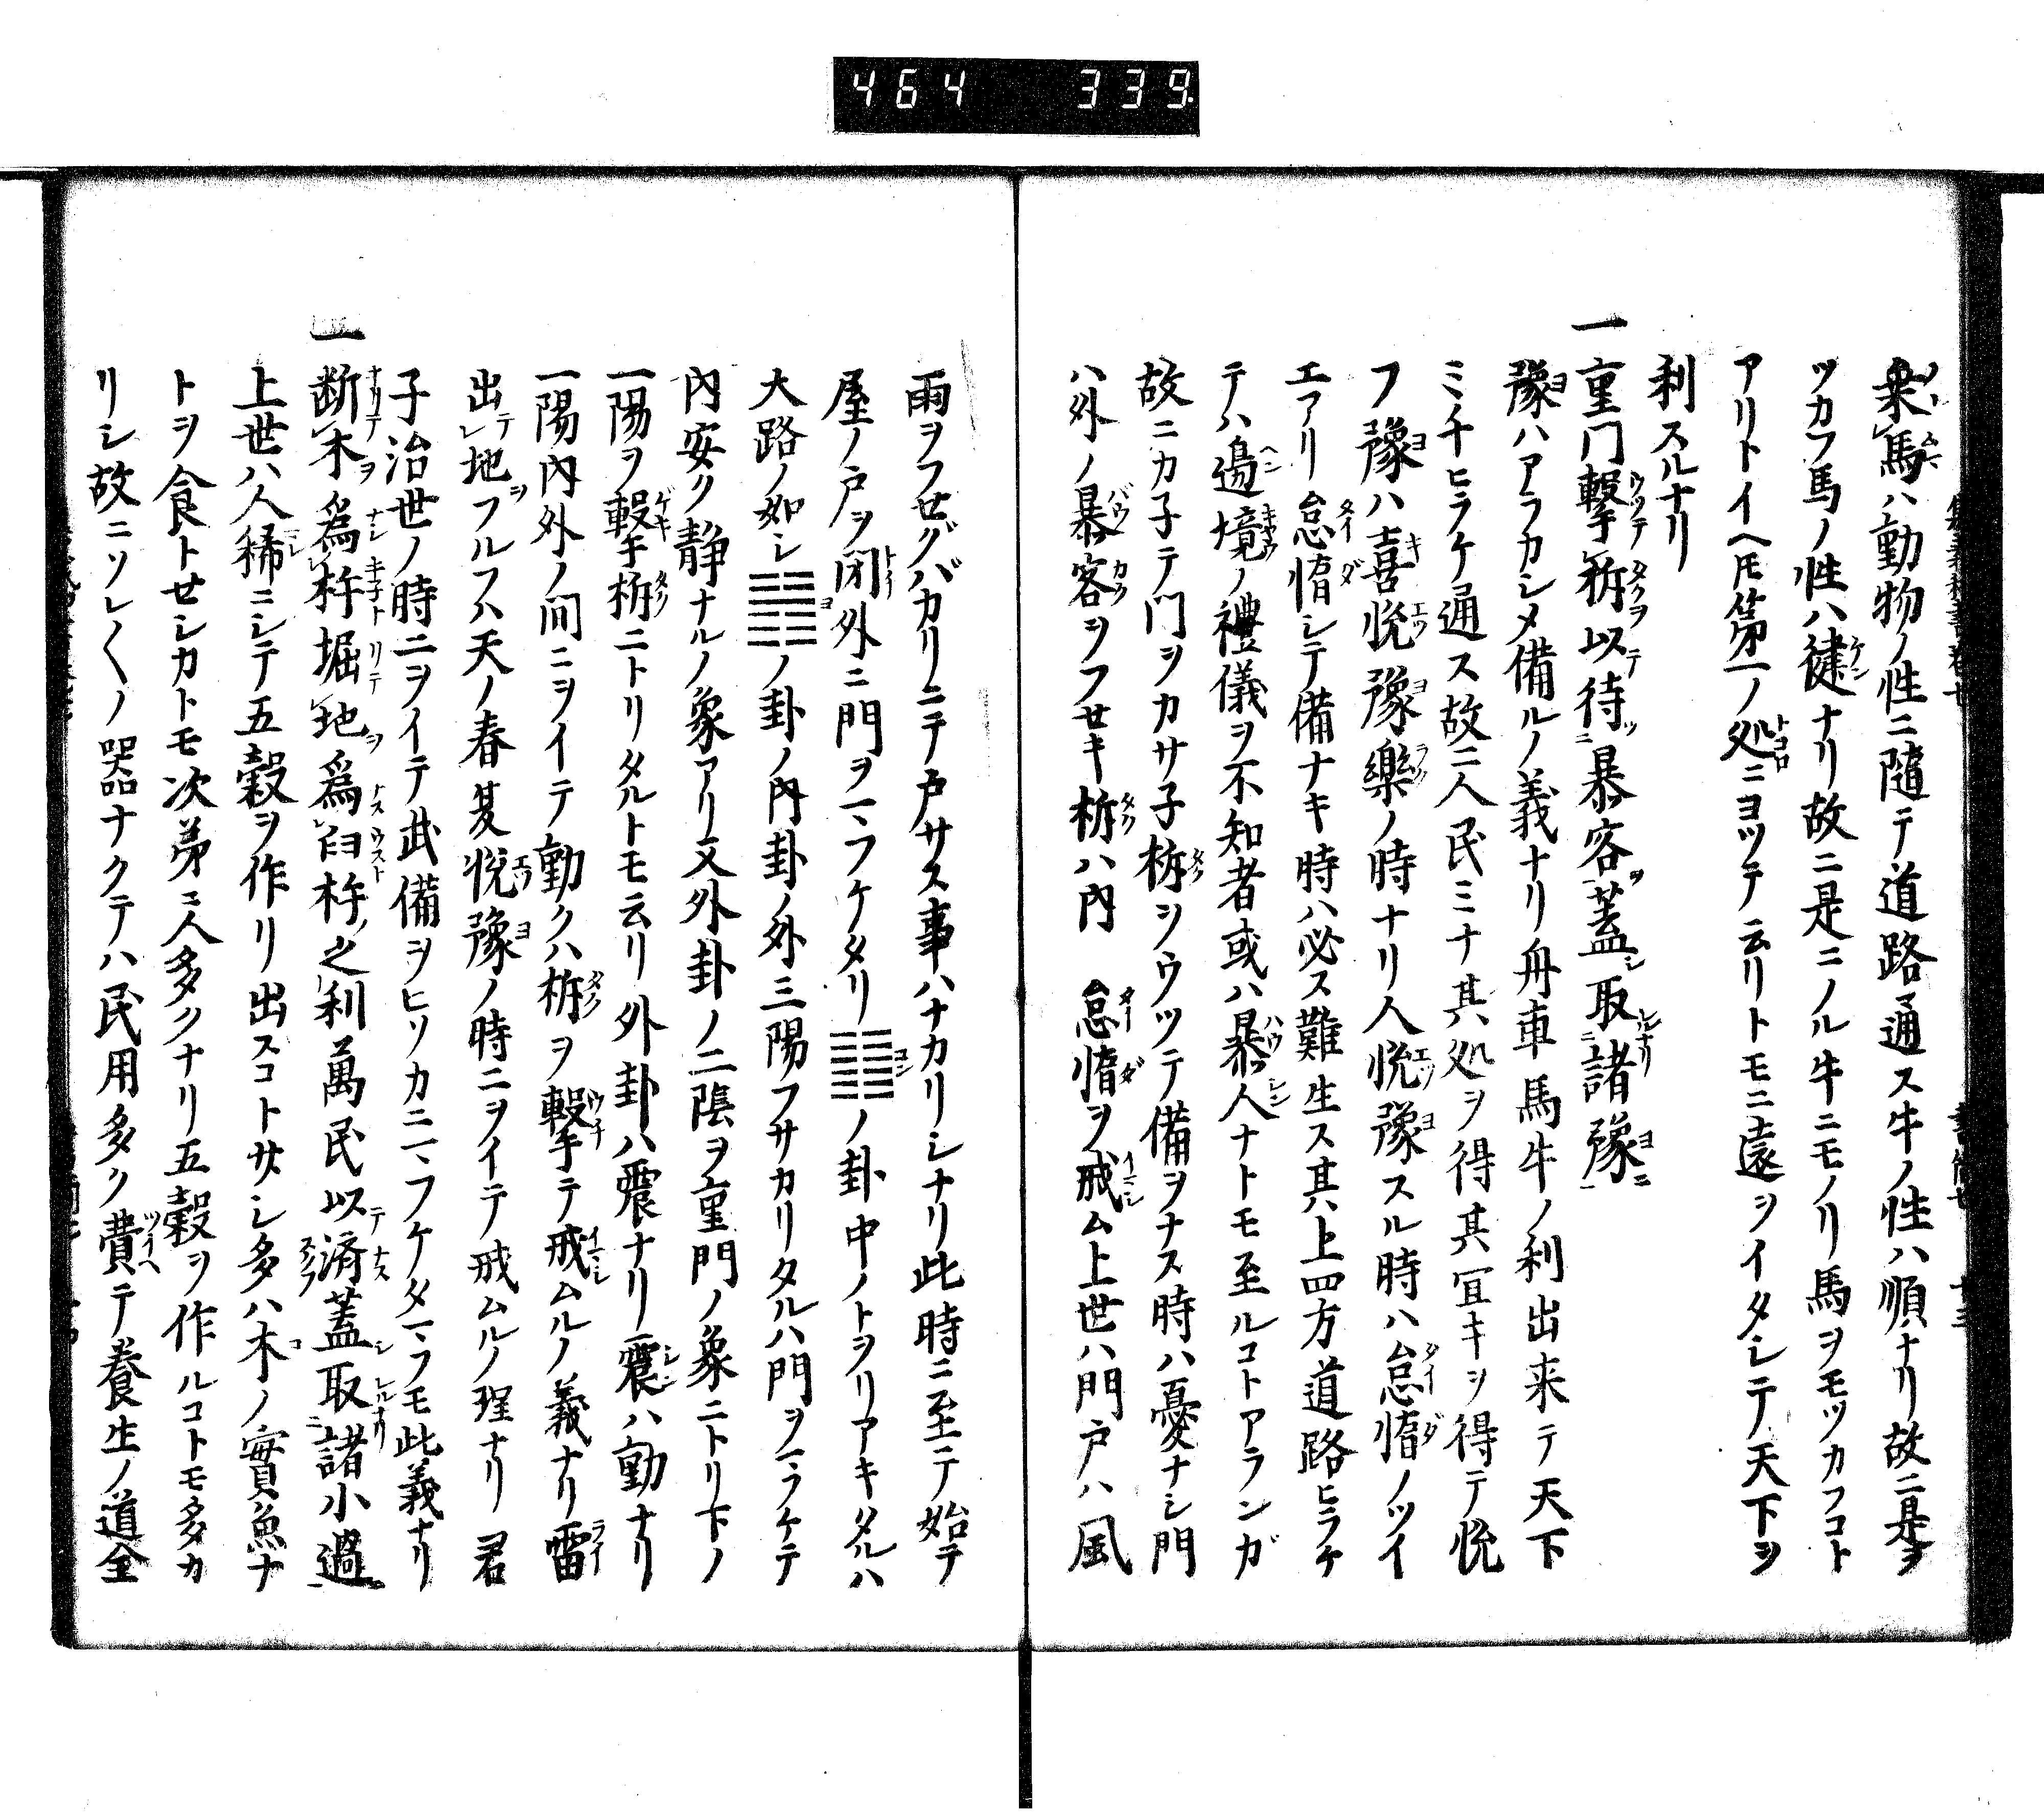 464 339
乗馬ハ動物ノ性ニ隨テ道路通ス牛ノ性ハ順ナリ故ニ是ヲ
ツカフ馬ノ性ハ健ナリ故ニ是ニノル牛ニモノリ馬ヲモツカフコト
アリトイヘ𪜈第一ノ処ニヨツテ云リトモニ遠ヲイタシテ天下ヲ
利スルナリ
一重門撃柝以待暴客蓋取諸豫
豫ハアラカシメ備ルノ義ナリ舟車馬牛ノ利出来テ天下
ミチヒラケ通ス故ニ人民ミナ其処ヲ得其冝キヲ得テ悦
フ豫ハ喜悦豫樂ノ時ナリ人悦豫スル時ハ怠惰ノツイ
エアリ怠惰シテ備ナキ時ハ必ス難生ス其上四方道路ヒラケ
テハ邊境ノ禮儀ヲ不知者或ハ暴人ナトモ至ルコトアランガ
故ニカ子テ門ヲカサ子柝ヲウツテ備ヲナス時ハ憂ナシ門
ハ外ノ暴客ヲフセキ柝ハ内怠惰ヲ戒ム上世ハ門戸ハ風
雨ヲフセグバカリニテ戸サス事ハナカリシナリ此時ニ至テ始テ
屋ノ戸ヲ閉外ニ門ヲマフケタリ䷏ノ卦中ノトヲリアキタルハ
大路ノ如シ䷏ノ卦ノ内卦ノ外三陽フサカリタルハ門ヲマフケテ
内安ク静ナルノ象アリ又外卦ノ二陰ヲ重門ノ象ニトリ下ノ
一陽ヲ撃柝ニトリタルトモ云リ外卦ハ震ナリ震ハ動ナリ
一陽内外ノ間ニヲイテ動クハ柝ヲ撃テ戒ムルノ義ナリ雷
出地フルフハ天ノ春夏悦豫ノ時ニヲイテ戒ムルノ理ナリ君
子治世ノ時ニヲイテ武備ヲヒソカニマフケタマフモ此義ナリ
一断木為杵堀地為臼杵之利萬民以済蓋取諸小過
上世ハ人稀ニシテ五穀ヲ作リ出スコトサシ多ハ木ノ實魚ナ
トヲ食トセシカトモ次第ニ人多クナリ五穀ヲ作ルコトモ多カ
リシ故ニソレ〱ノ器ナクテハ民用多ク費テ養生ノ道全